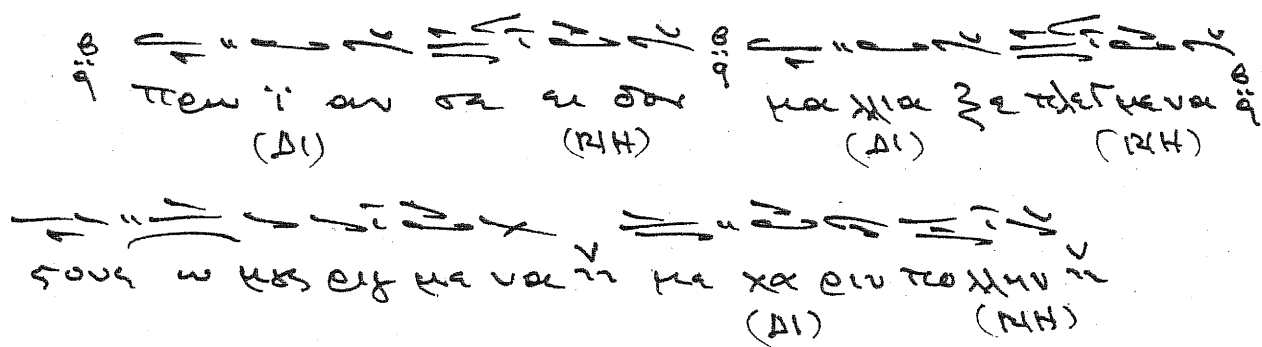 πρω ϊ αν σε ει δον μα λλια ξε πλεγμενα
(ΔΙ) (ΝΗ) (ΔΙ) (ΝΗ)
ϛους ω μους ριγ με να με χα ριν πο λλην
(ΔΙ) (ΝΗ)